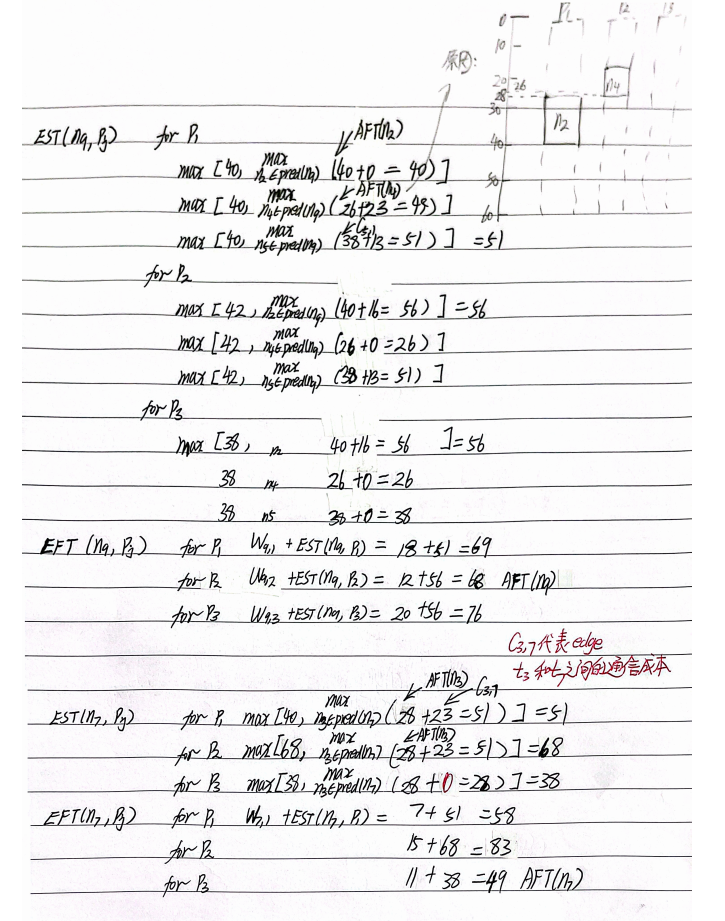 0 P1 P2 P3
10
原因:
20 26 n4
28
30
EST(n9, Pj) for P1 AFT(n2) n2
40
max [40, max n2∈pred(n9) [40+0 = 40)]
AFT(n4)
50
max [40, max n4∈pred(n9) (26+23 = 49)]
60
C5,9
max [40, max n5∈pred(n9) (38+13 = 51)] =51
for P2
max [42, max n2∈pred(n9) (40+16= 56)] =56
max [42, max n4∈pred(n9) (26+0 =26)]
max [42, max n5∈pred(n9) (38+13= 51)]
for P3
max [38, n2 40+16 = 56 ]=56
38 n4 26+0=26
38 n5 38+0=38
EFT (n9, Pj) for P1 W9,1 +EST(n9, P1) = 18+51 =69
for P2 W9,2 +EST(n9, P2) = 12+56 = 68 AFT(n9)
for P3 W9,3 +EST(n9, P3)= 20+56 =76
C3,7代表edge
t3和t7之间的通信成本
AFT(n3) C3,7
EST(n7, Pj) for P1 max[40, max n3∈pred(n7) (28+23=51)] =51
AFT(n3)
for P2 max[68, max n3∈pred(n7) (28+23=51)] =68
for P3 max[38, max n3∈pred(n7) (28+0=28)]=38
EFT(n7, Pj) for P1 W7,1 +EST(n7, P1) = 7+51 =58
for P2 15+68 =83
for P3 11+38 =49 AFT(n7)